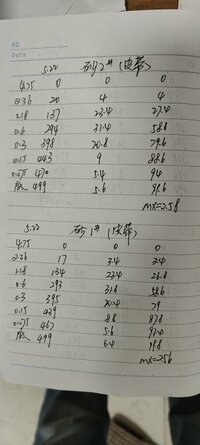 NO.
Date
5.22 砂2# (皮带)
4.75 0 0 0
2.36 20 4 4
1.18 137 23.4 27.4
0.6 294 31.4 58.8
0.3 398 20.8 79.6
0.15 443 9 88.6
0.075 470 5.4 94
底 499 5.6 99.6
mx=2.58
5.22 砂1# (皮带)
4.75 0 0 0
2.36 17 3.4 3.4
1.18 134 23.4 26.8
0.6 293 31.8 58.6
0.3 395 20.4 79
0.15 439 8.8 87.8
0.075 467 5.6 93.4
底 499 6.4 99.8
mx=2.56